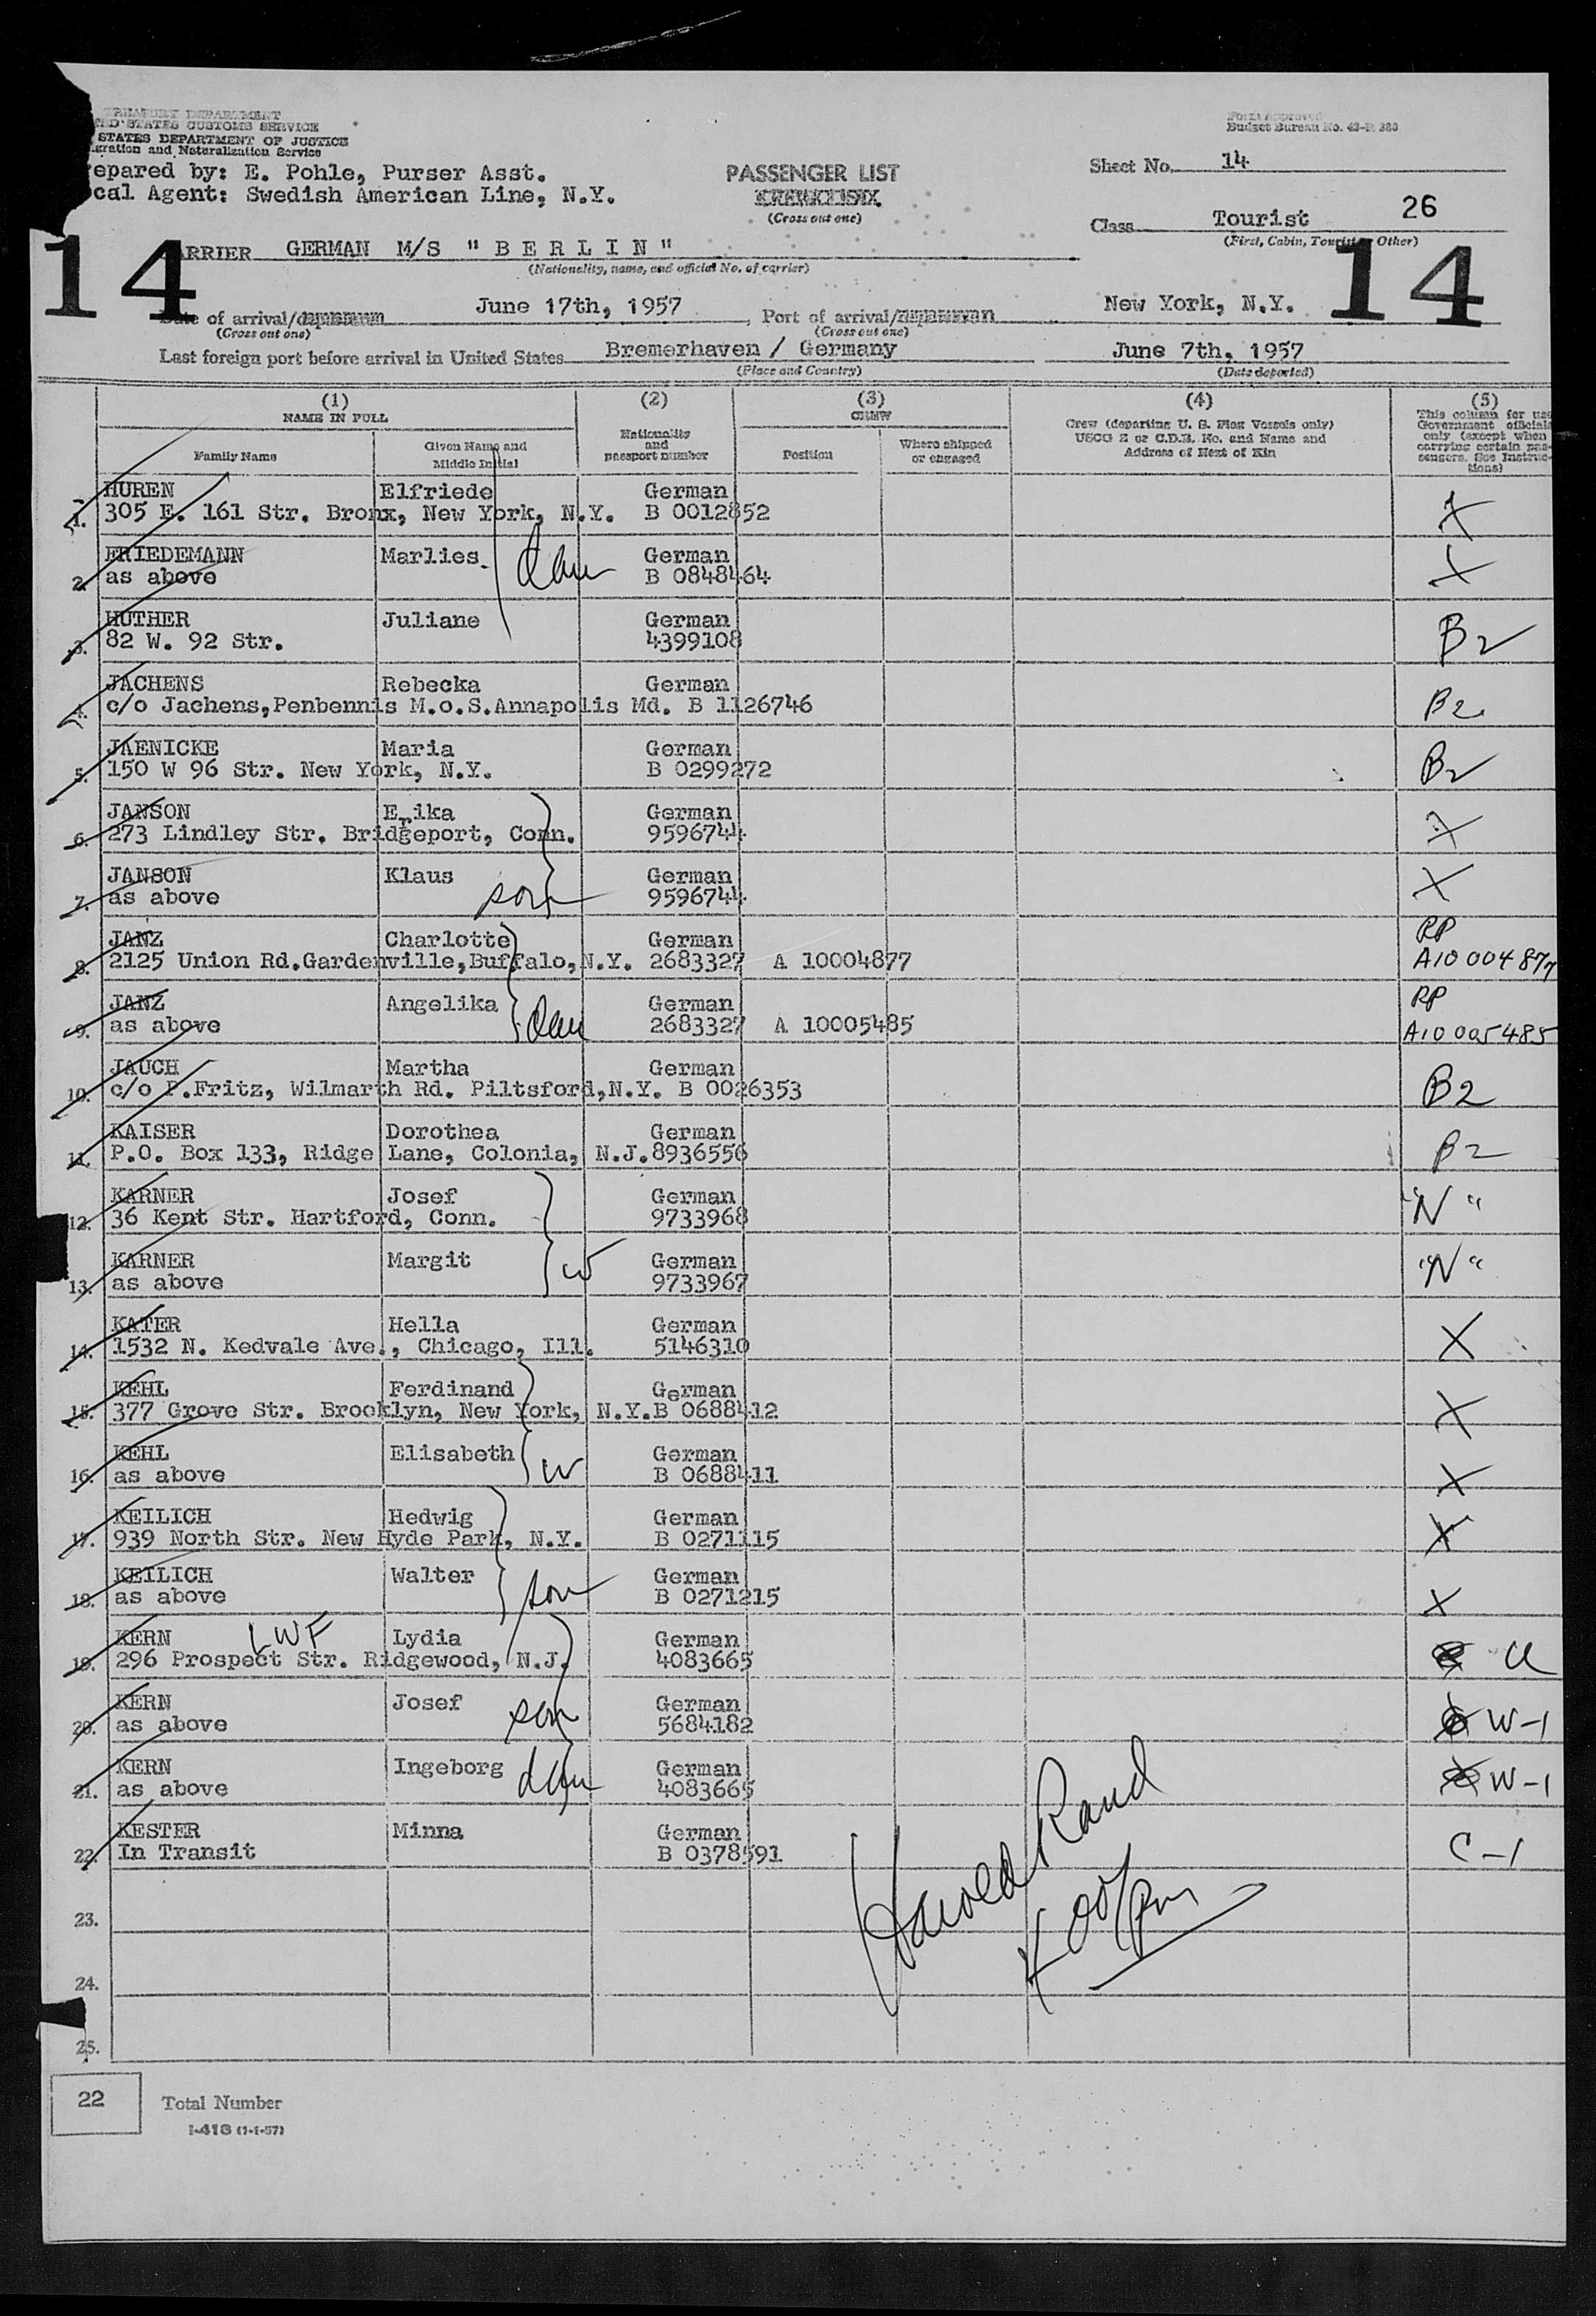 TREASURY DEPARTMENT
TED STATES CUSTOMS SERVICE
STATES DEPARTMENT OF JUSTICE
gration and Naturalization Service
epared by: E. Pohle, Purser Asst.
cal Agent: Swedish American Line, N.Y.
PASSENGER LIST
(Cross out one)
Form Approved
Budget Bureau No. 43-R 380
Sheet No. 14
Class Tourist 26
(First, Cabin, Tourist, Other)
14 ARRIER GERMAN M/S " B E R L I N " 14
(Nationality, name, and official No. of carrier)
Date of arrival/ June 17th, 1957, Port of arrival/ New York, N.Y.
(Cross out one) (Cross out one)
Last foreign port before arrival in United States Bremerhaven / Germany June 7th, 1957
(Place and Country) (Date departed)
(1) (2) (3) (4) (5)
NAME IN FULL
Family Name
Given Name and
Middle Initial
Nationality
and
passport number
CREW
Position
Where shipped
or engaged
Crew (departing U. S. Flag Vessels only)
USCG Z or C.D.B. No. and Name and
Address of Next of Kin
This column for use
Government officials
only (except when
carrying certain pas-
sengers. See Instruc-
tions)
1. HUREN Elfriede German X
305 E. 161 Str. Bronx, New York, N.Y. B 0012852
2. FRIEDEMANN Marlies. dau German X
as above B 0848464
3. HUTHER Juliane German B2
82 W. 92 Str. 4399108
4. JACHENS Rebecka German B2
c/o Jachens,Penbennis M.o.S.Annapolis Md. B 1126746
5. JAENICKE Maria German B2
150 W 96 Str. New York, N.Y. B 0299272
6. JANSON Erika German X
273 Lindley Str. Bridgeport, Conn. 9596744
7. JANSON Klaus son German X
as above 9596744
8. JANZ Charlotte German RP
2125 Union Rd.Gardenville,Buffalo,N.Y. 2683327 A 10004877 A10 004 877
9. JANZ Angelika dau German RP
as above 2683327 A 10005485 A10 005 485
10. JAUCH Martha German B2
c/o P.Fritz, Wilmarth Rd. Piltsford,N.Y. B 0026353
11. KAISER Dorothea German B2
P.O. Box 133, Ridge Lane, Colonia, N.J.8936556
12. KARNER Josef German "N"
36 Kent Str. Hartford, Conn. 9733968
13. KARNER Margit W German "N"
as above 9733967
14. KATER Hella German X
1532 N. Kedvale Ave., Chicago, Ill. 5146310
15. KEHL Ferdinand German X
377 Grove Str. Brooklyn, New York, N.Y.B 0688412
16. KEHL Elisabeth W German X
as above B 0688411
17. KEILICH Hedwig German X
939 North Str. New Hyde Park, N.Y. B 0271115
18. KEILICH Walter son German X
as above B 0271215
19. KERN LWF Lydia German
296 Prospect Str. Ridgewood, N.J. 4083665
20. KERN Josef son German W-1
as above 5684182
21. KERN Ingeborg dau German W-1
as above 4083665
22. KESTER Minna German C-1
In Transit B 0378591
Harold Rand
23.
24.
25.
22 Total Number
I-418 (1-1-57)